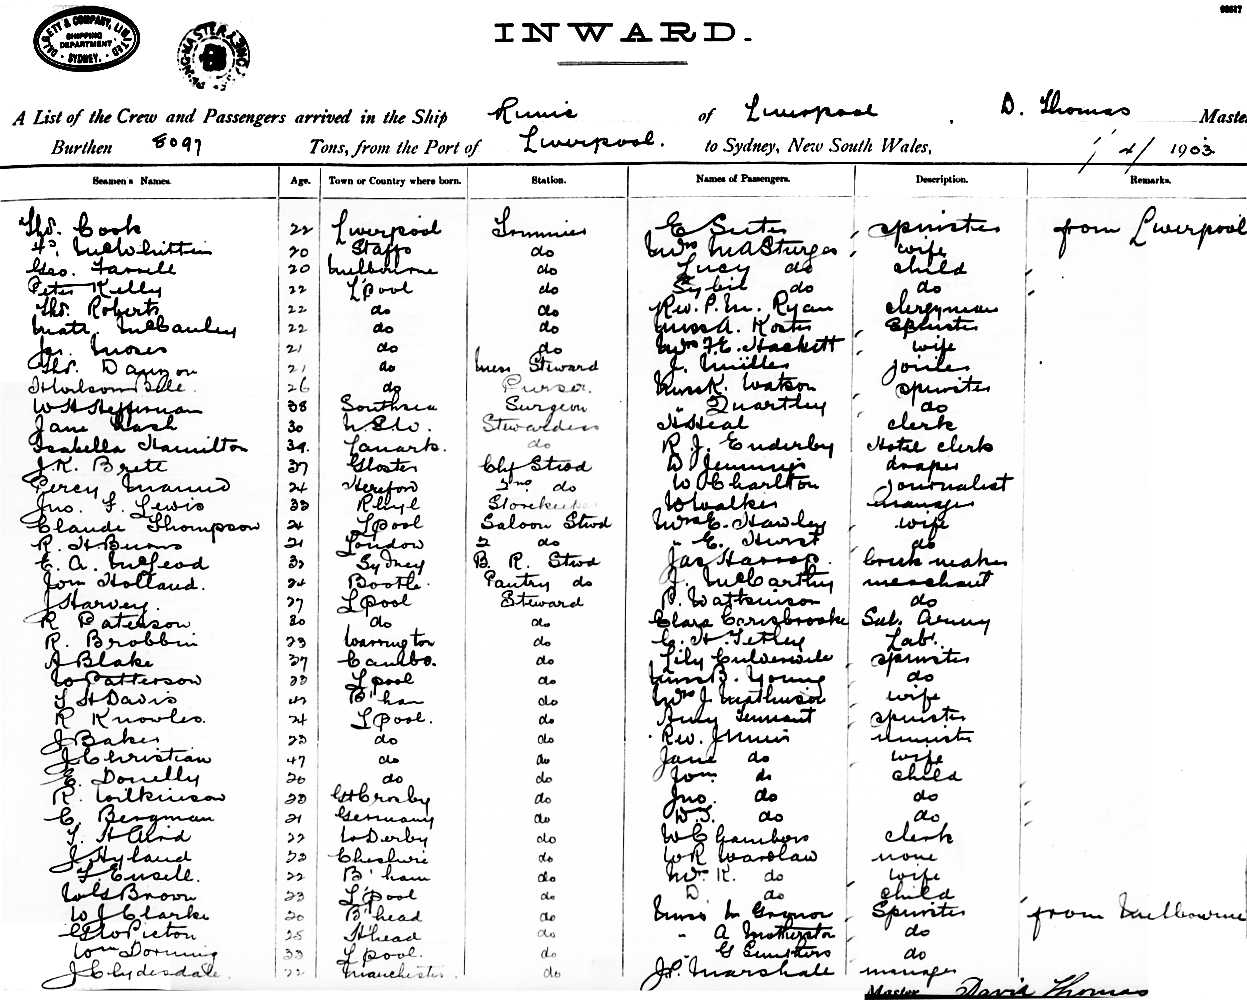 DALGETY & COMPANY, LIMITED
SHIPPING
DEPARTMENT
SYDNEY.
INWARD.
A List of the Crew and Passengers arrived in the Ship Runic of Liverpool, D. Thomas Master
Burthen 8097 Tons, from the Port of Liverpool. to Sydney, New South Wales, 1/4/1903
Seamen's Names. Age. Town or Country where born. Station. Names of Passengers. Description. Remarks.
Thos. Cook 22 Liverpool Trimmer E Suter spinster from Liverpool
McWhittin 20 Staffs do Mrs M A Sturges wife
Geo. Farrell 20 Melbourne do Lucy do child
Peter Kelly 22 L'pool do Sybil do do
Thos. Roberts 22 do do Rev. P. M. Ryan clergyman
Matt. McCauley 22 do do Miss A. Koster Spinster
Jas. Moses 21 do do Mrs F. E. Hackett wife
Thos. 21 do Mess Steward J. Miller joiner
26 do Purser. Miss K. Watson spinster
W H Heffernan 38 Southsea Surgeon " Quartley do
Jane Nash 30 N.S.W. Stewardess H Heal clerk
Isabella Hamilton 39. Lanark. do R. J. Enderby Hotel clerk
J. K. Brett 37 Gloster Chf Stwd D Jennings draper
Percy 24 Hereford 2nd do W Charlton journalist
Jno. F. Lewis 33 Rhyl Storekeeper W Walker manager
Claude Thompson 24 L'pool Saloon Stwd Mrs E. Hawley wife
R. H Burns 21 London 2 do " E. Hurst do
E. A. McLeod 32 Sydney B. R. Stwd Jas Harrop. brick maker
Tom Holland. 24 Bootle. Pantry do J. McCarthy merchant
J Harvey. 27 L'pool Steward P. Watkinson do
R Paterson 30 do do Clara Carisbrooke Sal. Army
R. Brobbin 23 Warrington do C. H. Tetley Lab.
A Blake 37 Cambs. do Lily spinster
W Patterson 33 L'pool do Miss B. Young do
T H Davis 42 B'ham do Mrs J Mathieson wife
R Knowles. 24 L'pool. do Amy Tennant spinster
J Baker 23 do do Rev. J Muir minister
J Christian 47 do do Jane do wife
E. Donelly 20 do do Tom do child
R. Wilkinson 23 Gt Crosby do Jno. do do
C. Bergman 21 Germany do W. J. do do
T. H Aird 22 W Derby do W Chambers clerk
J Hyland 23 Cheshire do W R Wardlaw none
F. Ensell. 22 B'ham do Mrs K. do wife
W G Broom 23 L'pool do D. do child
W J Clarke 20 B'head do Miss M Graynor Spinster from Melbourne
G W Picton 25 do " A do
Wm Dorning 33 L'pool. do " G do
J Clydesdale. 22 Manchester. do J. P. Marshall manager
Master David Thomas